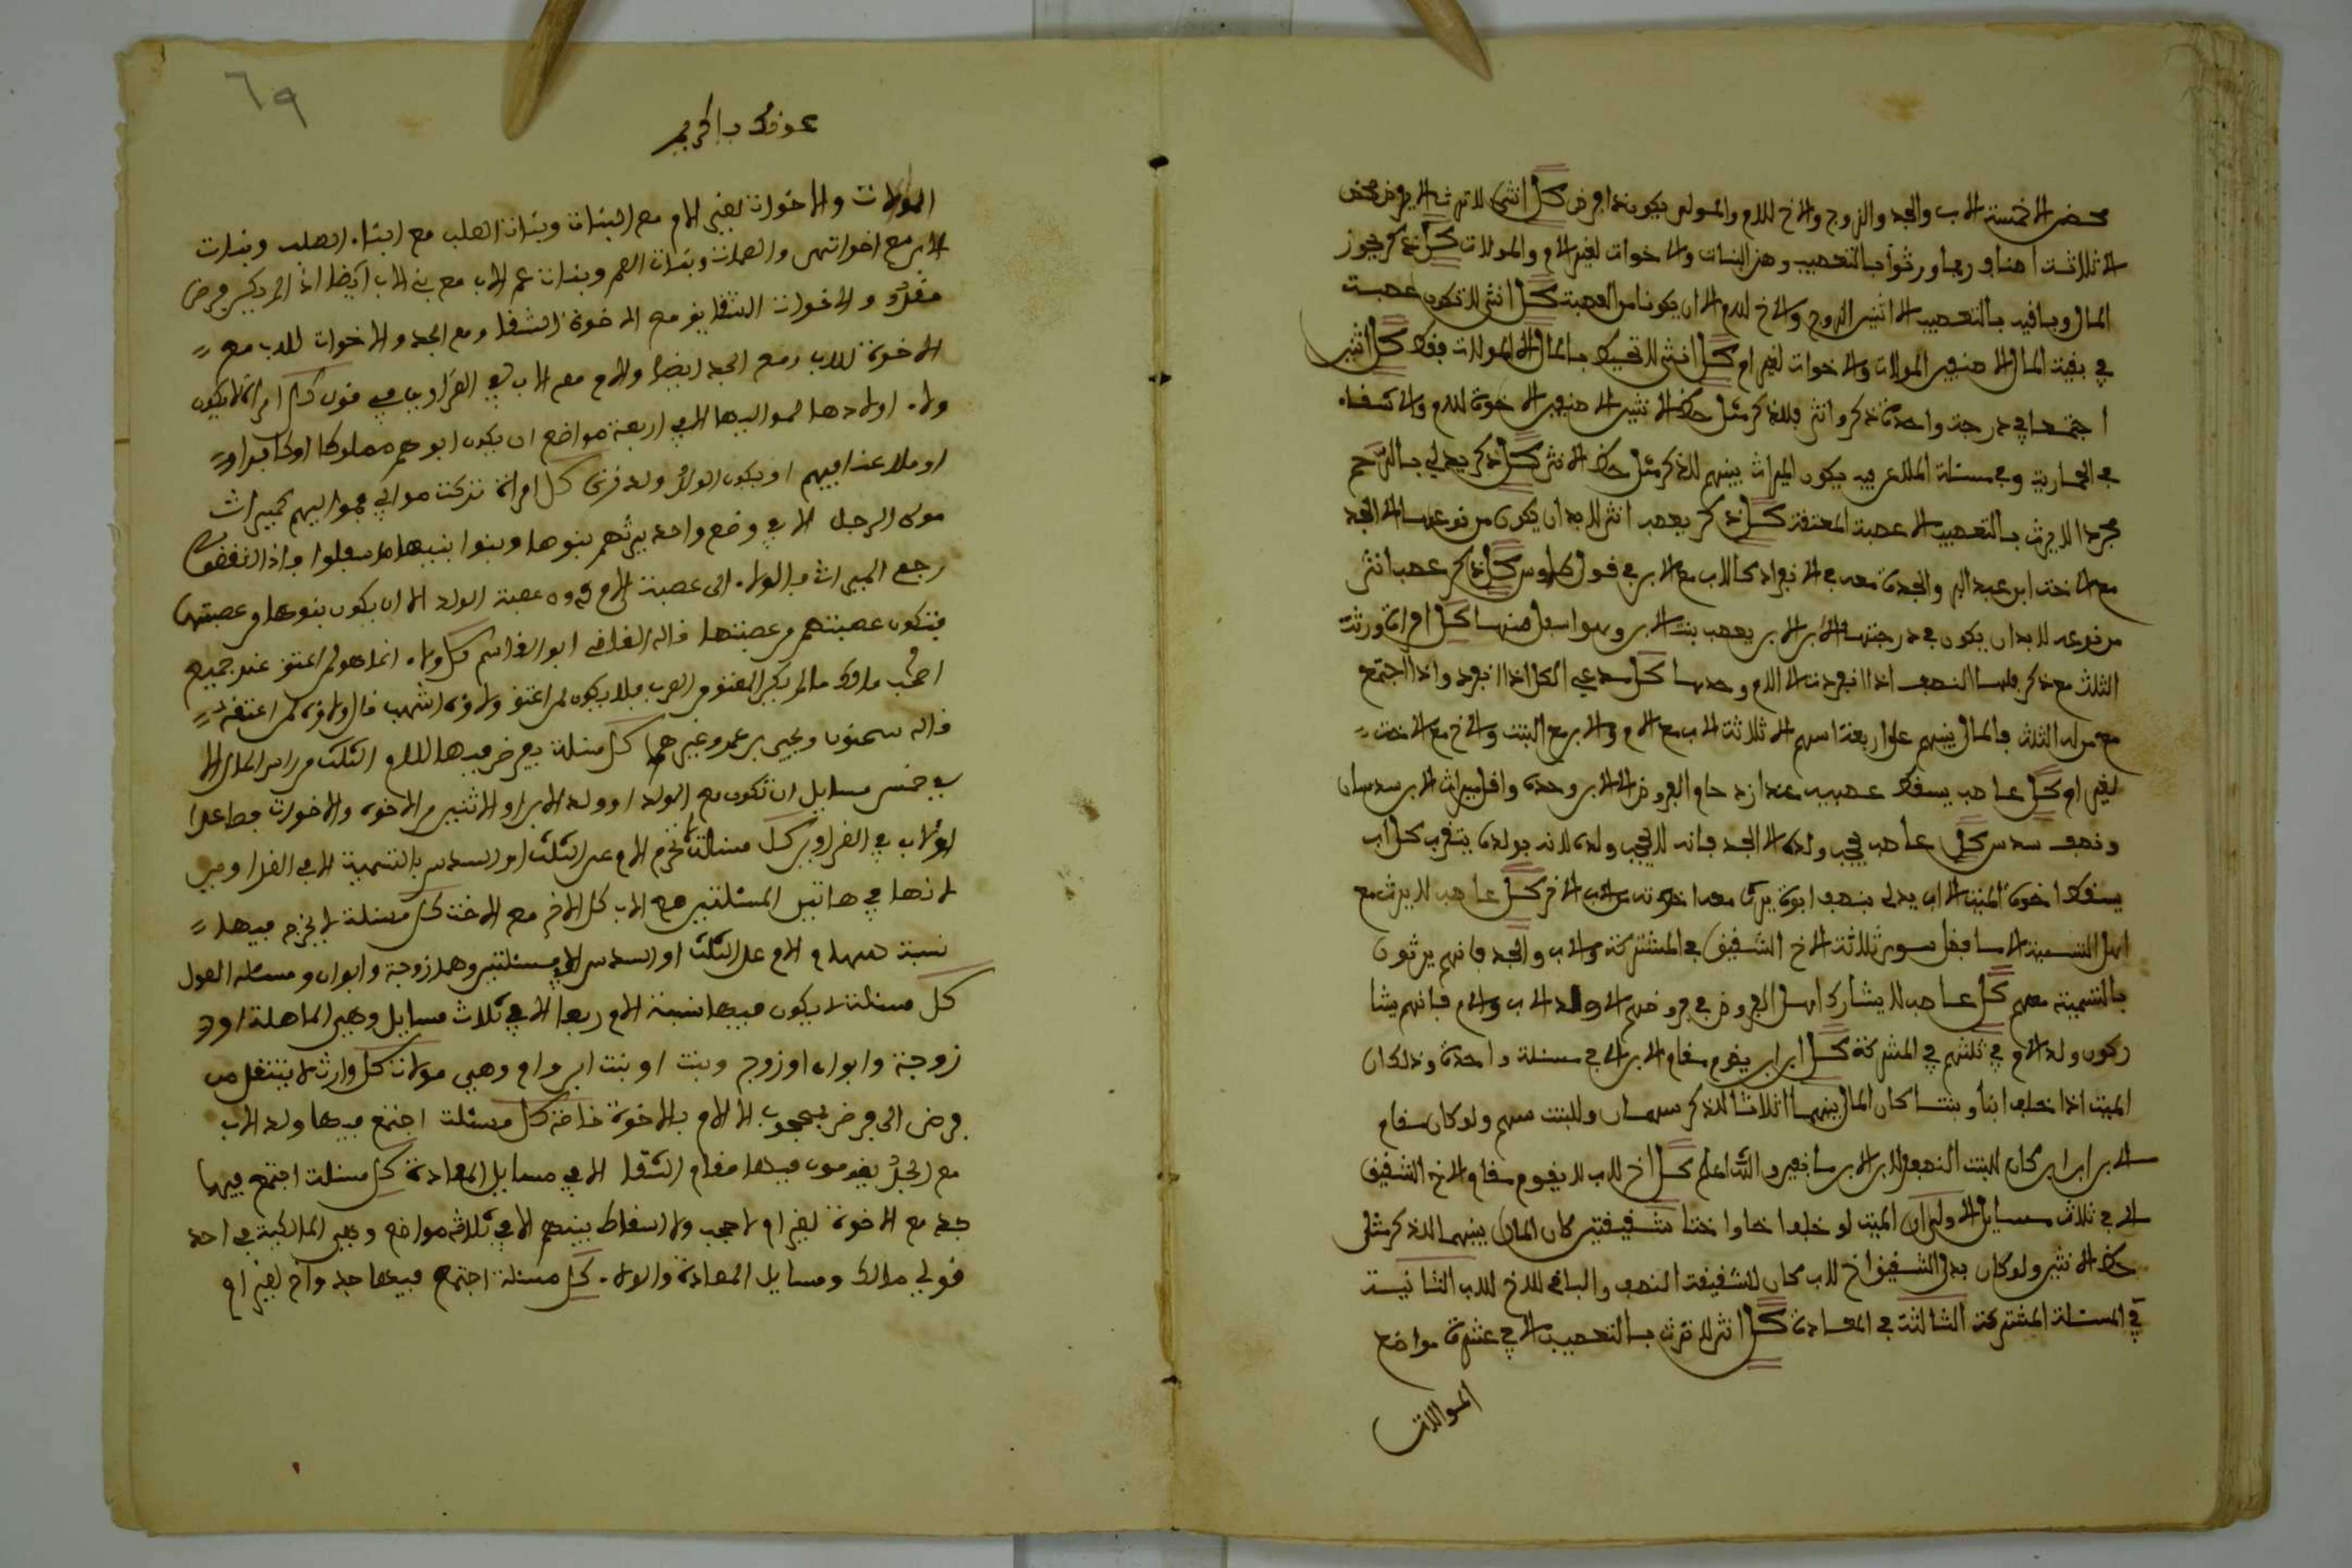 محض الا خمسة الاب والجد والزوج والاخ للام والمولى يكون ذا فرض كل انثى لا ترث الا بفرض محض
الا ثلاثة اصناف ربما ورثوا بالتعصيب وهن البنات والاخوات لغير الام والمولات كل ذكر يحوز
المال وباقيه بالتعصيب الا اثنين الزوج والاخ للام الا ان يكونا من العصبة كل انثى لا تكون عصبة
في بقية المال الا صنفين المولات والاخوات لغير ام كل انثى لا تحيط بالمال الا المولات فقط كل اثنين
اجتمعا في درجة واحدة ذكر وانثى فللذكر مثل حظ الانثيين الا صنفين الاخوة للام والاشقاء
في الحمارية وفي مسئلة الملاعن فيه يكون الميراث بينهم للذكر مثل حظ الانثى كل ذكر يدلي بالرحم
مجردا لا يرث بالتعصيب الا عصبة المعتقة كل ذكر يعصب انثى لا بد ان يكون من نوعها الا الجد
مع الاخت ابن عبد البر والجدة معه في الانفراد كالاب مع الابن في قول طاوس كل ذكر عصب انثى
من نوعه لا بد ان يكون في درجتها الا ابن الابن يعصب بنت الابن وهو اسفل منها كل امراة ورثت
الثلث مع ذكر فلها النصف اذا انفردت الا الام وحدها كل مدعي الكل اذا انفرد واذا اجتمع
مع من له الثلث فالمال بينهم على اربعة اسهم الا ثلاثة الاب مع الام والابن مع البنت والاخ مع الاخت
لغير ام كل عاصب يسقط عصيبه عند ازدحام الفروض الا الابن وحده واقل ميراث الابن سدسان
ونصف سدس كل عاصب يحجب ولده الا الجد فانه لا يحجب ولده لانه بولده يتقرب كل اب
يسقط اخوة الميت الا اب يدلي بنصف ابوة يرث معه اخوته من الاب الاخر كل عاصب لا يرث مع
اهل التسمية الا ما فضل سوى ثلاثة الاخ الشقيق في المشتركة والاب والجد فانهم يرثون
بالتسمية معهم كل عاصب لا يشارك اهل الفروض في فروضهم الا ولد الاب والام فانهم يشا
ركون ولد الام في ثلثهم في المشتركة كل ابن ابن يقوم مقام الابن الا في مسئلة واحدة وذلك ان
الميت اذا خلف ابنا وبنتا كان المال بينهما اثلاثا للذكر سهمان وللبنت سهم ولو كان مقام
الابن ابن ابن كان للبنت النصف ولابن الابن ما بقي والله اعلم كل اخ للاب لا يقوم مقام الاخ الشقيق
الا في ثلاث مسايل الاولى ان الميت لو خلف اخا واختا شقيقتين كان المال بينهما للذكر مثل
حظ الانثيين ولو كان بدل الشقيق اخ للاب كان للشقيقة النصف والباقي للاخ للاب الثانية
في المسئلة المشتركة الثالثة في المعادة كل انثى لا ترث بالتعصيب الا في عشرة مواضع
المولات
٦٩
عونك يا كريم
المولات والاخوات لغير الام مع البنات وبنات الصلب مع ابناء الصلب وبنات
الابن مع اخواتهن والعمات وبنات العم وبنات عم الاب مع بني الاب ايضا اذا لم يكن فرض
مقدر والاخوات الشقايق مع الاخوة الشقا ومع الجد والاخوات للاب مع
الاخوة للاب ومع الجد ايضا والام مع الاب في الغراوين في قول كل امراة لا يكون
ولاء اولادها لمواليها الا في اربعة مواضع ان يكون ابوهم مملوكا او كافرا او
او ملاعنا فيهم او يكون الولد ولد زنى كل امراة تركت موالي فمواليهم كميراث
مولى الرجل الا في وضع واحد يرثهم بنوها وبنوا بنيها ما سفلوا فاذا انقضوا
رجع الميراث بالولاء الى عصبة الام دون عصبة الولد الا ان يكون بنوها من عصبتها
فتكون عصبتهم من عصبتها قاله القاضي ابو القاسم كل ولاء انما هو لمن اعتق عند جميع
اصحاب مالك ما لم يكن المعتق من العرب فلا يكون لمن اعتق ولاؤه اشهب قال ولاؤه لمن اعتقه
قاله سحنون ويحيى بن عمر وغيرهما كل مسئلة يفرض فيها للام الثلث من راس المال الا
في خمس مسايل ان تكون مع الولد او ولد الابن او الاثنين من الاخوة والاخوات فصاعدا
او الاب في الغراوين كل مسئلة لا تخرج الام عن الثلث او السدس بالتسمية الا في الغراوين
لانها في هاتين المسئلتين مع الاب كل الاخ مع الاخت كل مسئلة لا يخرج فيها
نسبة سهم الام على الثلث او السدس الا في مسئلتين وهما زوجة وابوان ومسئلة العول
كل مسئلة لا يكون فيها نسبة الام ربعا الا في ثلاث مسايل وهي المباهلة او
زوجة وابوان او زوج وبنت او بنت ابن وام وهي مولات كل وارث لا ينتقل من
فرض الى فرض بحجب الا الام بالاخوة خاصة كل مسئلة اجتمع فيها ولد الاب
مع الجد يقومون فيها مقام الشقا الا في مسايل المعادة كل مسئلة اجتمع فيها
جد مع الاخوة لغير ام لا حجب ولا اسقاط بينهم الا في ثلاثة مواضع وهي المالكية في احد
قولي مالك ومسايل المعادة والولاء كل مسئلة اجتمع فيها جد واخ لغير ام